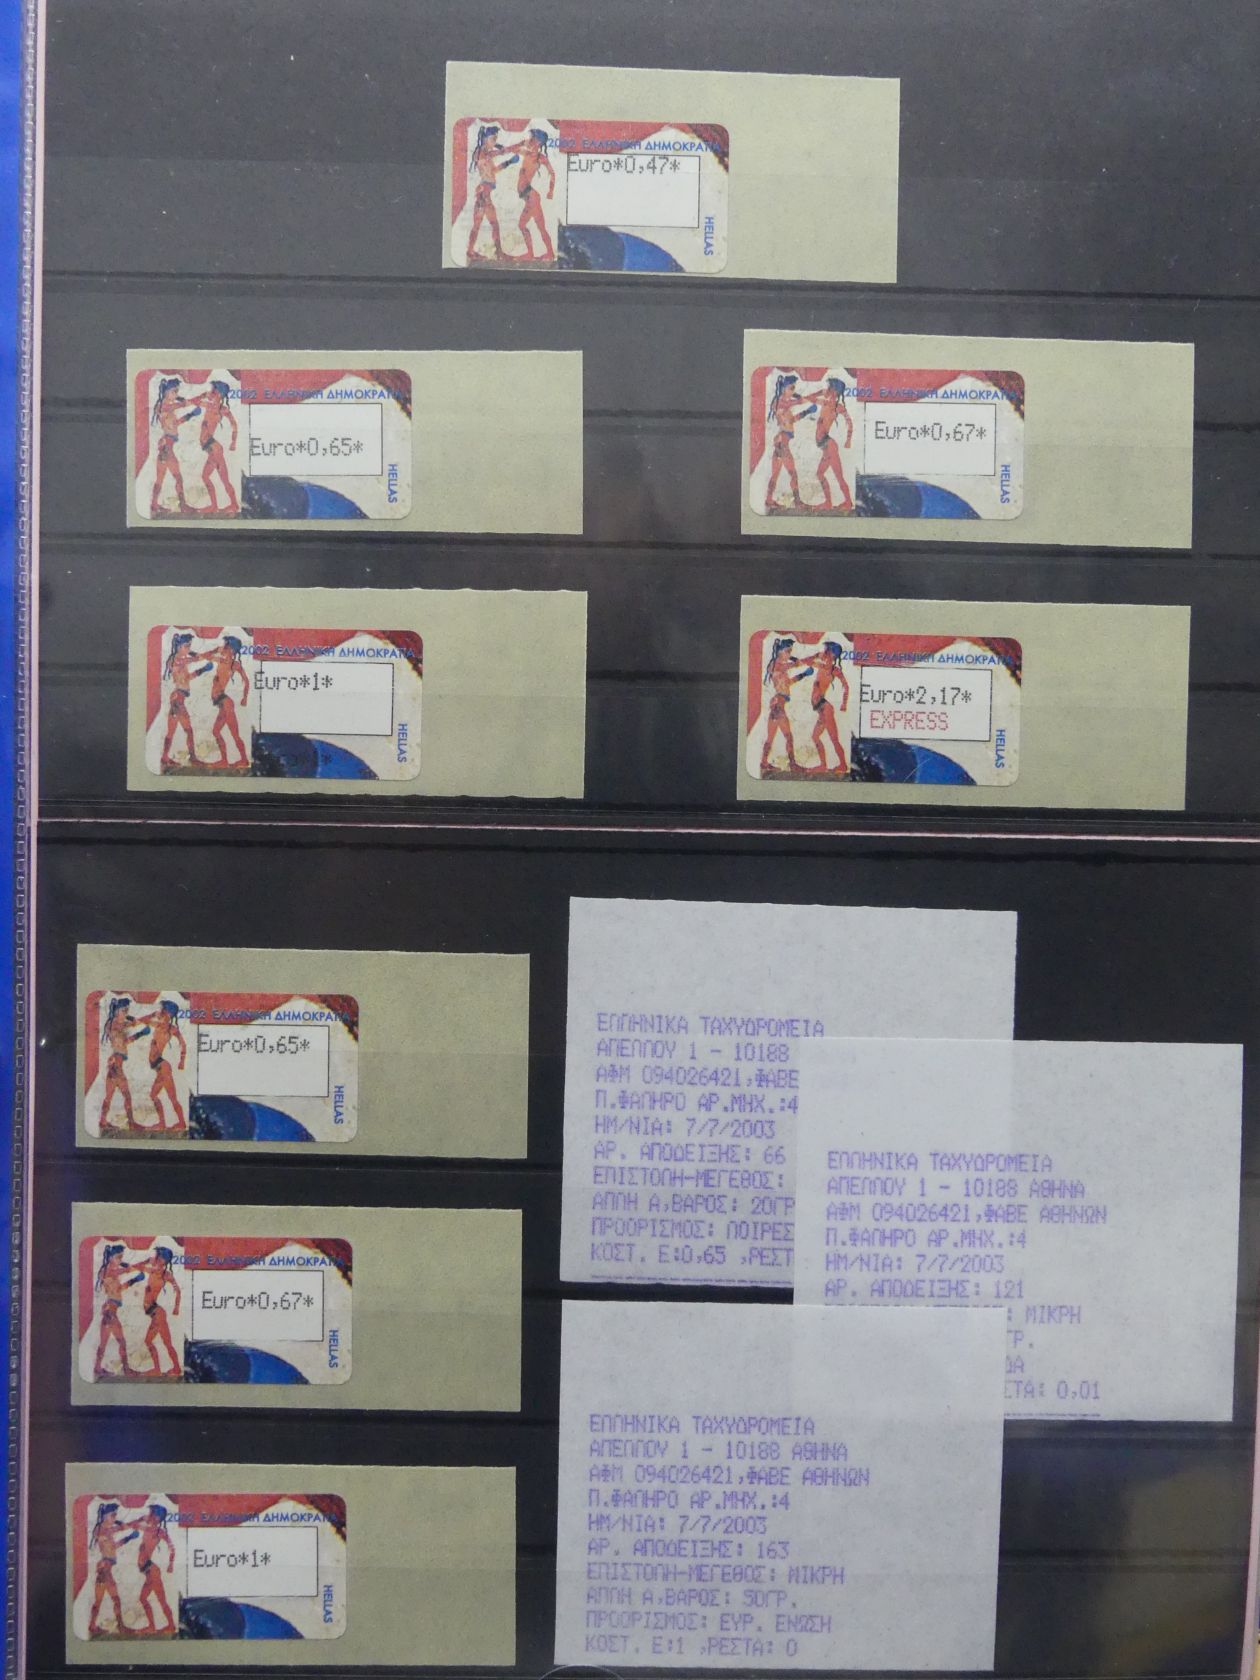 2002 ΕΛΛΗΝΙΚΗ ΔΗΜΟΚΡΑΤΙΑ
Euro*0,47*
HELLAS
2002 ΕΛΛΗΝΙΚΗ ΔΗΜΟΚΡΑΤΙΑ
Euro*0,65*
HELLAS
2002 ΕΛΛΗΝΙΚΗ ΔΗΜΟΚΡΑΤΙΑ
Euro*0,67*
HELLAS
2002 ΕΛΛΗΝΙΚΗ ΔΗΜΟΚΡΑΤΙΑ
Euro*1*
HELLAS
2002 ΕΛΛΗΝΙΚΗ ΔΗΜΟΚΡΑΤΙΑ
Euro*2,17*
EXPRESS
HELLAS
2002 ΕΛΛΗΝΙΚΗ ΔΗΜΟΚΡΑΤΙΑ
Euro*0,65*
HELLAS
2002 ΕΛΛΗΝΙΚΗ ΔΗΜΟΚΡΑΤΙΑ
Euro*0,67*
HELLAS
2002 ΕΛΛΗΝΙΚΗ ΔΗΜΟΚΡΑΤΙΑ
Euro*1*
HELLAS
ΕΛΛΗΝΙΚΑ ΤΑΧΥΔΡΟΜΕΙΑ
ΑΠΕΛΛΟΥ 1 - 10188
ΑΦΜ 094026421,ΦΑΒΕ
Π.ΦΑΛΗΡΟ ΑΡ.ΜΗΧ.:4
ΗΜ/ΝΙΑ: 7/7/2003
ΑΡ. ΑΠΟΔΕΙΞΗΣ: 66
ΕΠΙΣΤΟΛΗ-ΜΕΓΕΘΟΣ:
ΑΠΛΗ Α,ΒΑΡΟΣ: 20ΓΡ
ΠΡΟΟΡΙΣΜΟΣ: ΛΟΙΡΕΣ
ΚΟΣΤ. Ε:0,65 ,ΡΕΣΤ
ΕΛΛΗΝΙΚΑ ΤΑΧΥΔΡΟΜΕΙΑ
ΑΠΕΛΛΟΥ 1 - 10188 ΑΘΗΝΑ
ΑΦΜ 094026421,ΦΑΒΕ ΑΘΗΝΩΝ
Π.ΦΑΛΗΡΟ ΑΡ.ΜΗΧ.:4
ΗΜ/ΝΙΑ: 7/7/2003
ΑΡ. ΑΠΟΔΕΙΞΗΣ: 121
: ΜΙΚΡΗ
ΓΡ.
ΔΑ
ΣΤΑ: 0,01
ΕΛΛΗΝΙΚΑ ΤΑΧΥΔΡΟΜΕΙΑ
ΑΠΕΛΛΟΥ 1 - 10188 ΑΘΗΝΑ
ΑΦΜ 094026421,ΦΑΒΕ ΑΘΗΝΩΝ
Π.ΦΑΛΗΡΟ ΑΡ.ΜΗΧ.:4
ΗΜ/ΝΙΑ: 7/7/2003
ΑΡ. ΑΠΟΔΕΙΞΗΣ: 163
ΕΠΙΣΤΟΛΗ-ΜΕΓΕΘΟΣ: ΜΙΚΡΗ
ΑΠΛΗ Α,ΒΑΡΟΣ: 50ΓΡ.
ΠΡΟΟΡΙΣΜΟΣ: ΕΥΡ. ΕΝΩΣΗ
ΚΟΣΤ. Ε:1 ,ΡΕΣΤΑ: 0